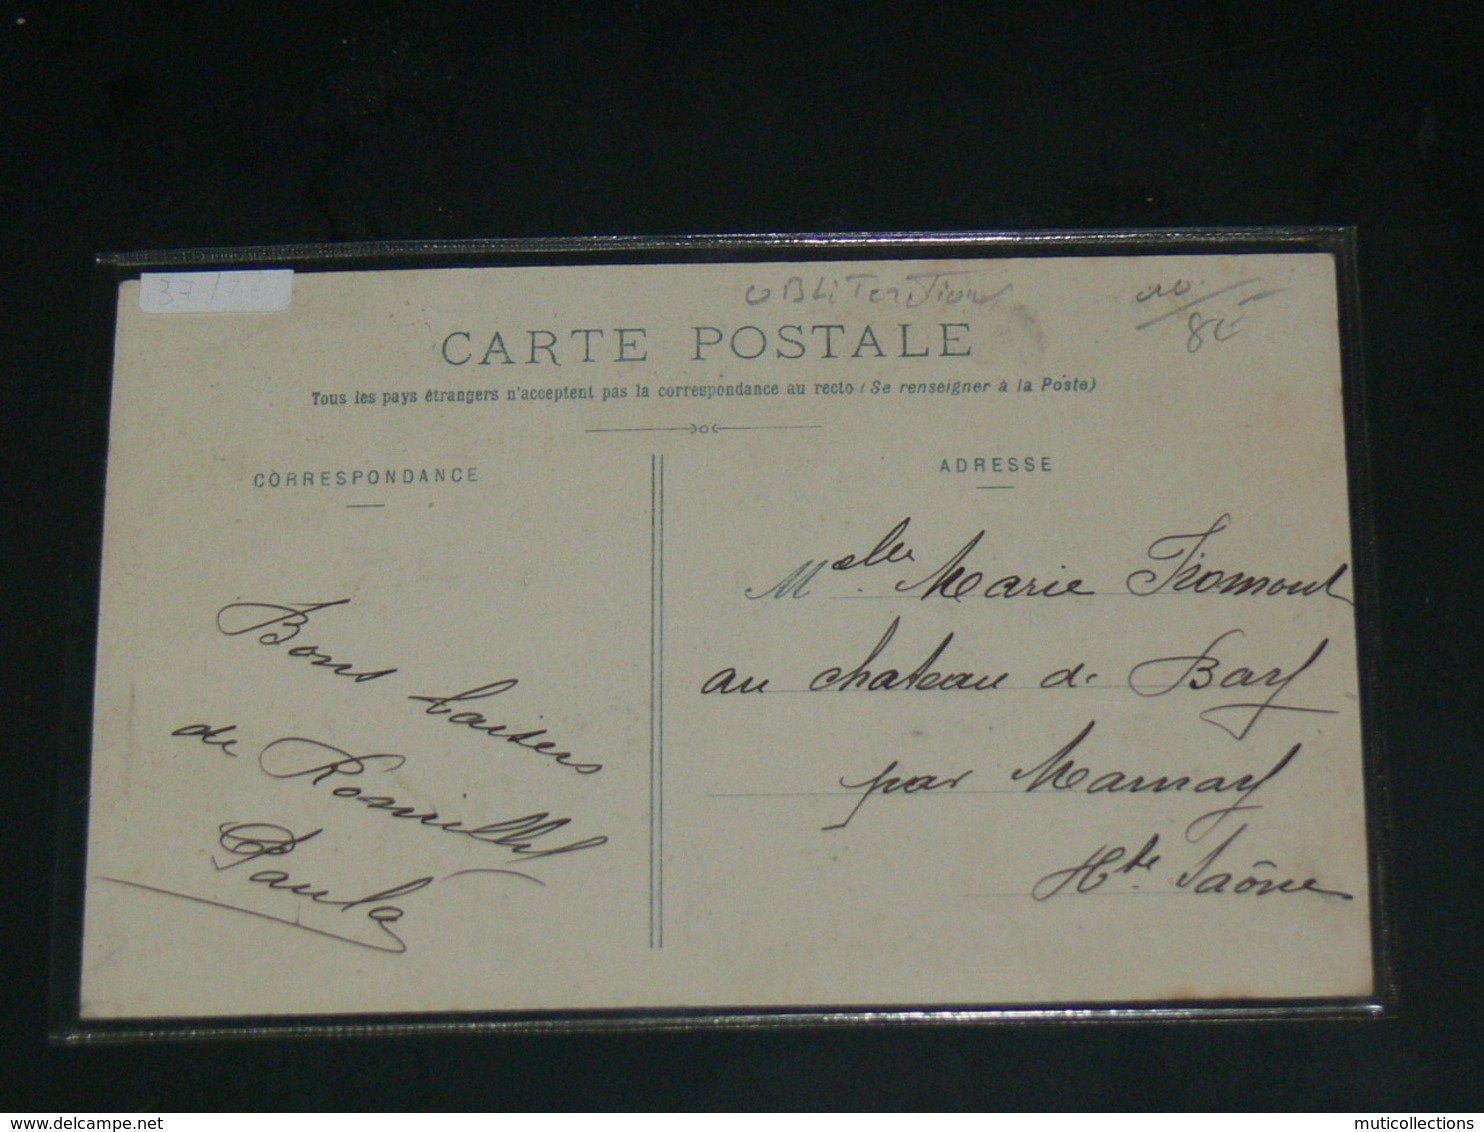 37/72
OBLITERATION
8€
CARTE POSTALE
Tous les pays étrangers n'acceptent pas la correspondance au recto (Se renseigner à la Poste)
CORRESPONDANCE
ADRESSE
Bons baisers
de Romillé
Paula
Melle Marie Fromont
au chateau de Bay
par Marnay
Hte Saône
delcampe.net
muticollections